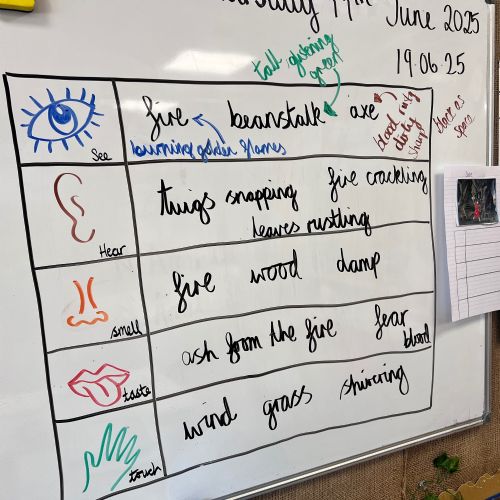 19th June 2025
19.06.25
tall glistening
green
See
fire beanstalk axe
burning golden flames
blood rusty
dirty
sharp
black as
space
Hear
twigs snapping fire crackling
leaves rustling
smell
fire wood damp
taste
ash from the fire fear
blood
touch
wind grass shivering